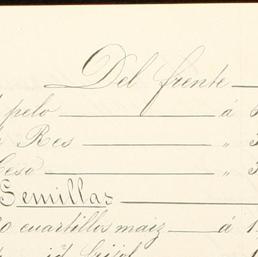 Del frente
pelo á
Res " 3
" 3
Semillas
0 cuartillos maiz á 1
id frijol